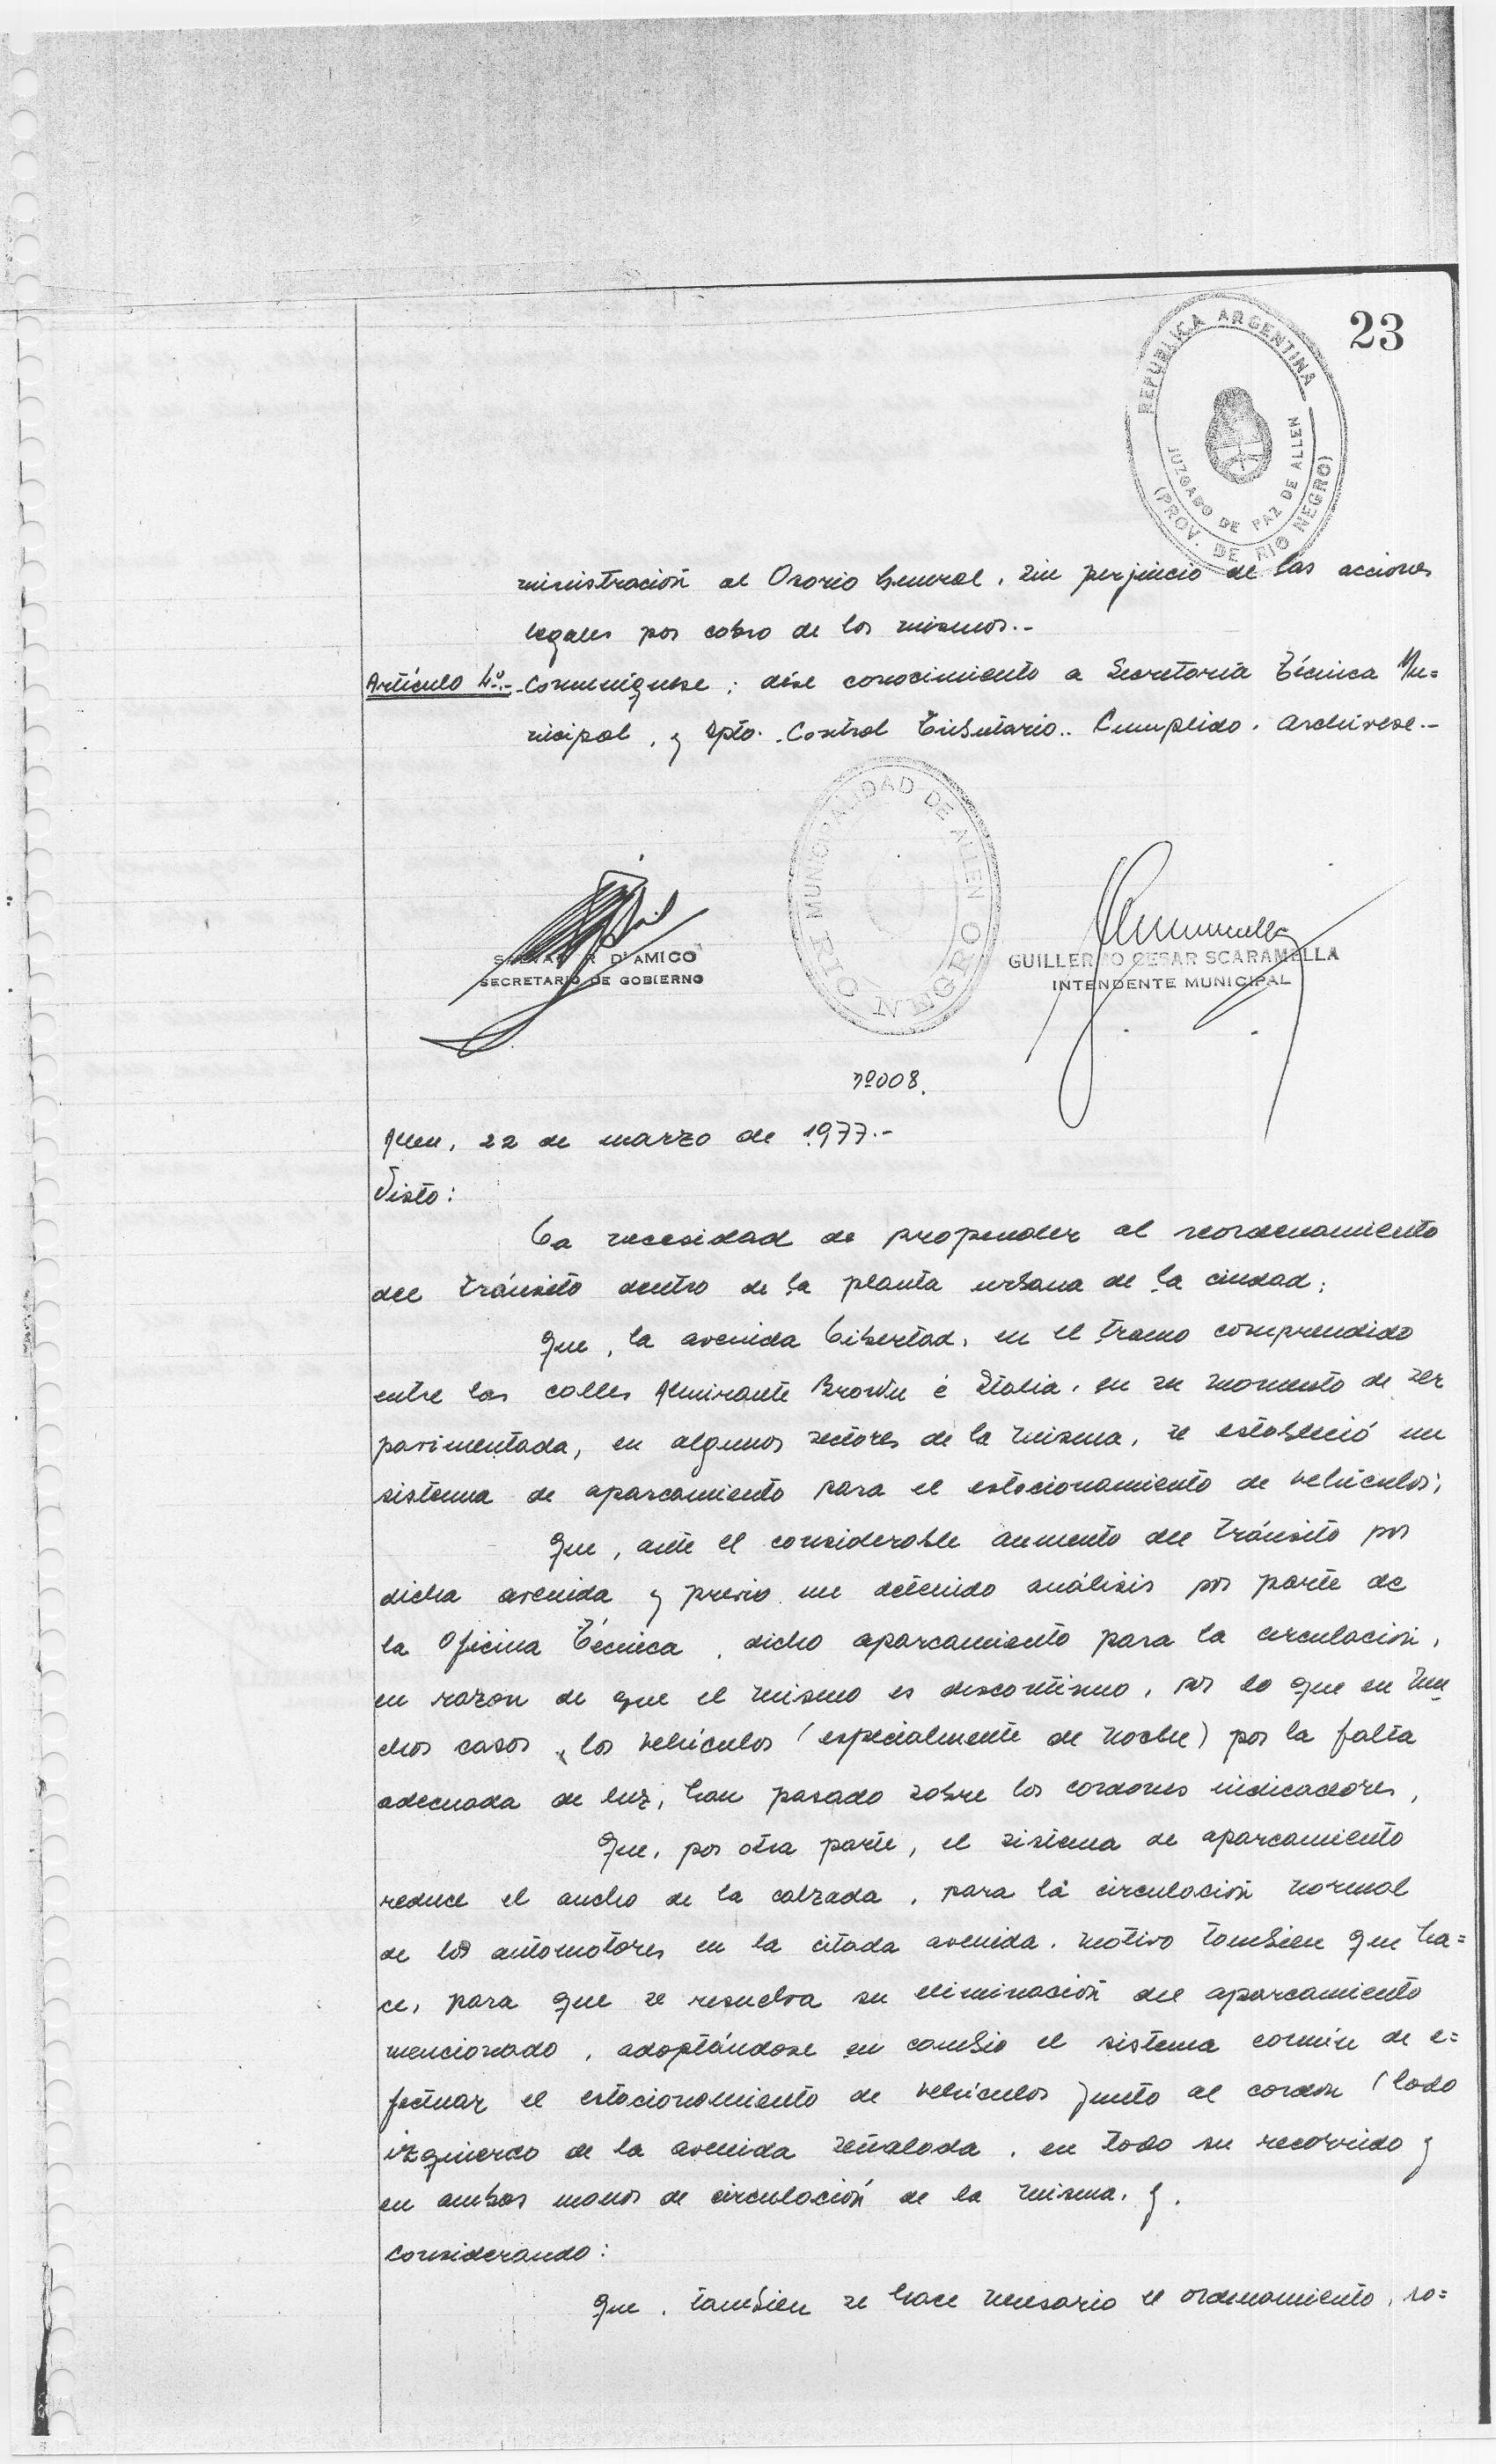 23
REPUBLICA ARGENTINA
JUZGADO DE PAZ DE ALLEN
(PROV. DE RIO NEGRO)
ministración al Osorio General, sin perjuicio de las acciones
legales por cobro de los mismos.-
Artículo 4º.- Comuníquese; dése conocimiento a Secretaría Técnica Mu=
nicipal, y Dpto. Control Tributario.. Cumplido. Archívese.-
MUNICIPALIDAD DE ALLEN
RIO NEGRO
D'AMICO
SECRETARIO DE GOBIERNO
GUILLERMO CESAR SCARAMELLA
INTENDENTE MUNICIPAL
nº008.
Allen, 22 de marzo de 1977.-
Visto:
La necesidad de propender al reordenamiento
del tránsito dentro de la planta urbana de la ciudad;
Que, la avenida Libertad, en el tramo comprendido
entre las calles Almirante Brown é Italia, en su momento de ser
pavimentada, en algunos sectores de la misma, se estableció un
sistema de aparcamiento para el estacionamiento de vehículos;
Que, ante el considerable aumento del tránsito por
dicha avenida y previo un detenido análisis por parte de
la Oficina Técnica, dicho aparcamiento para la circulación,
en razon de que el mismo es discontinuo, por lo que en mu
chos casos, los vehículos (especialmente de noche) por la falta
adecuada de luz, han pasado sobre los cordones indicadores,
Que, por otra parte, el sistema de aparcamiento
reduce el ancho de la calzada, para la circulación normal
de los automotores en la citada avenida, motivo tambien que ha=
ce, para que se resuelva su eliminación del aparcamiento
mencionado, adoptándose en cambio el sistema común de e=
fectuar el estacionamiento de vehículos junto al cordon (lado
izquierdo de la avenida señalada, en todo su recorrido y
en ambas manos de circulación de la misma, y.
Considerando:
Que, tambien se hace necesario el ordenamiento, so=